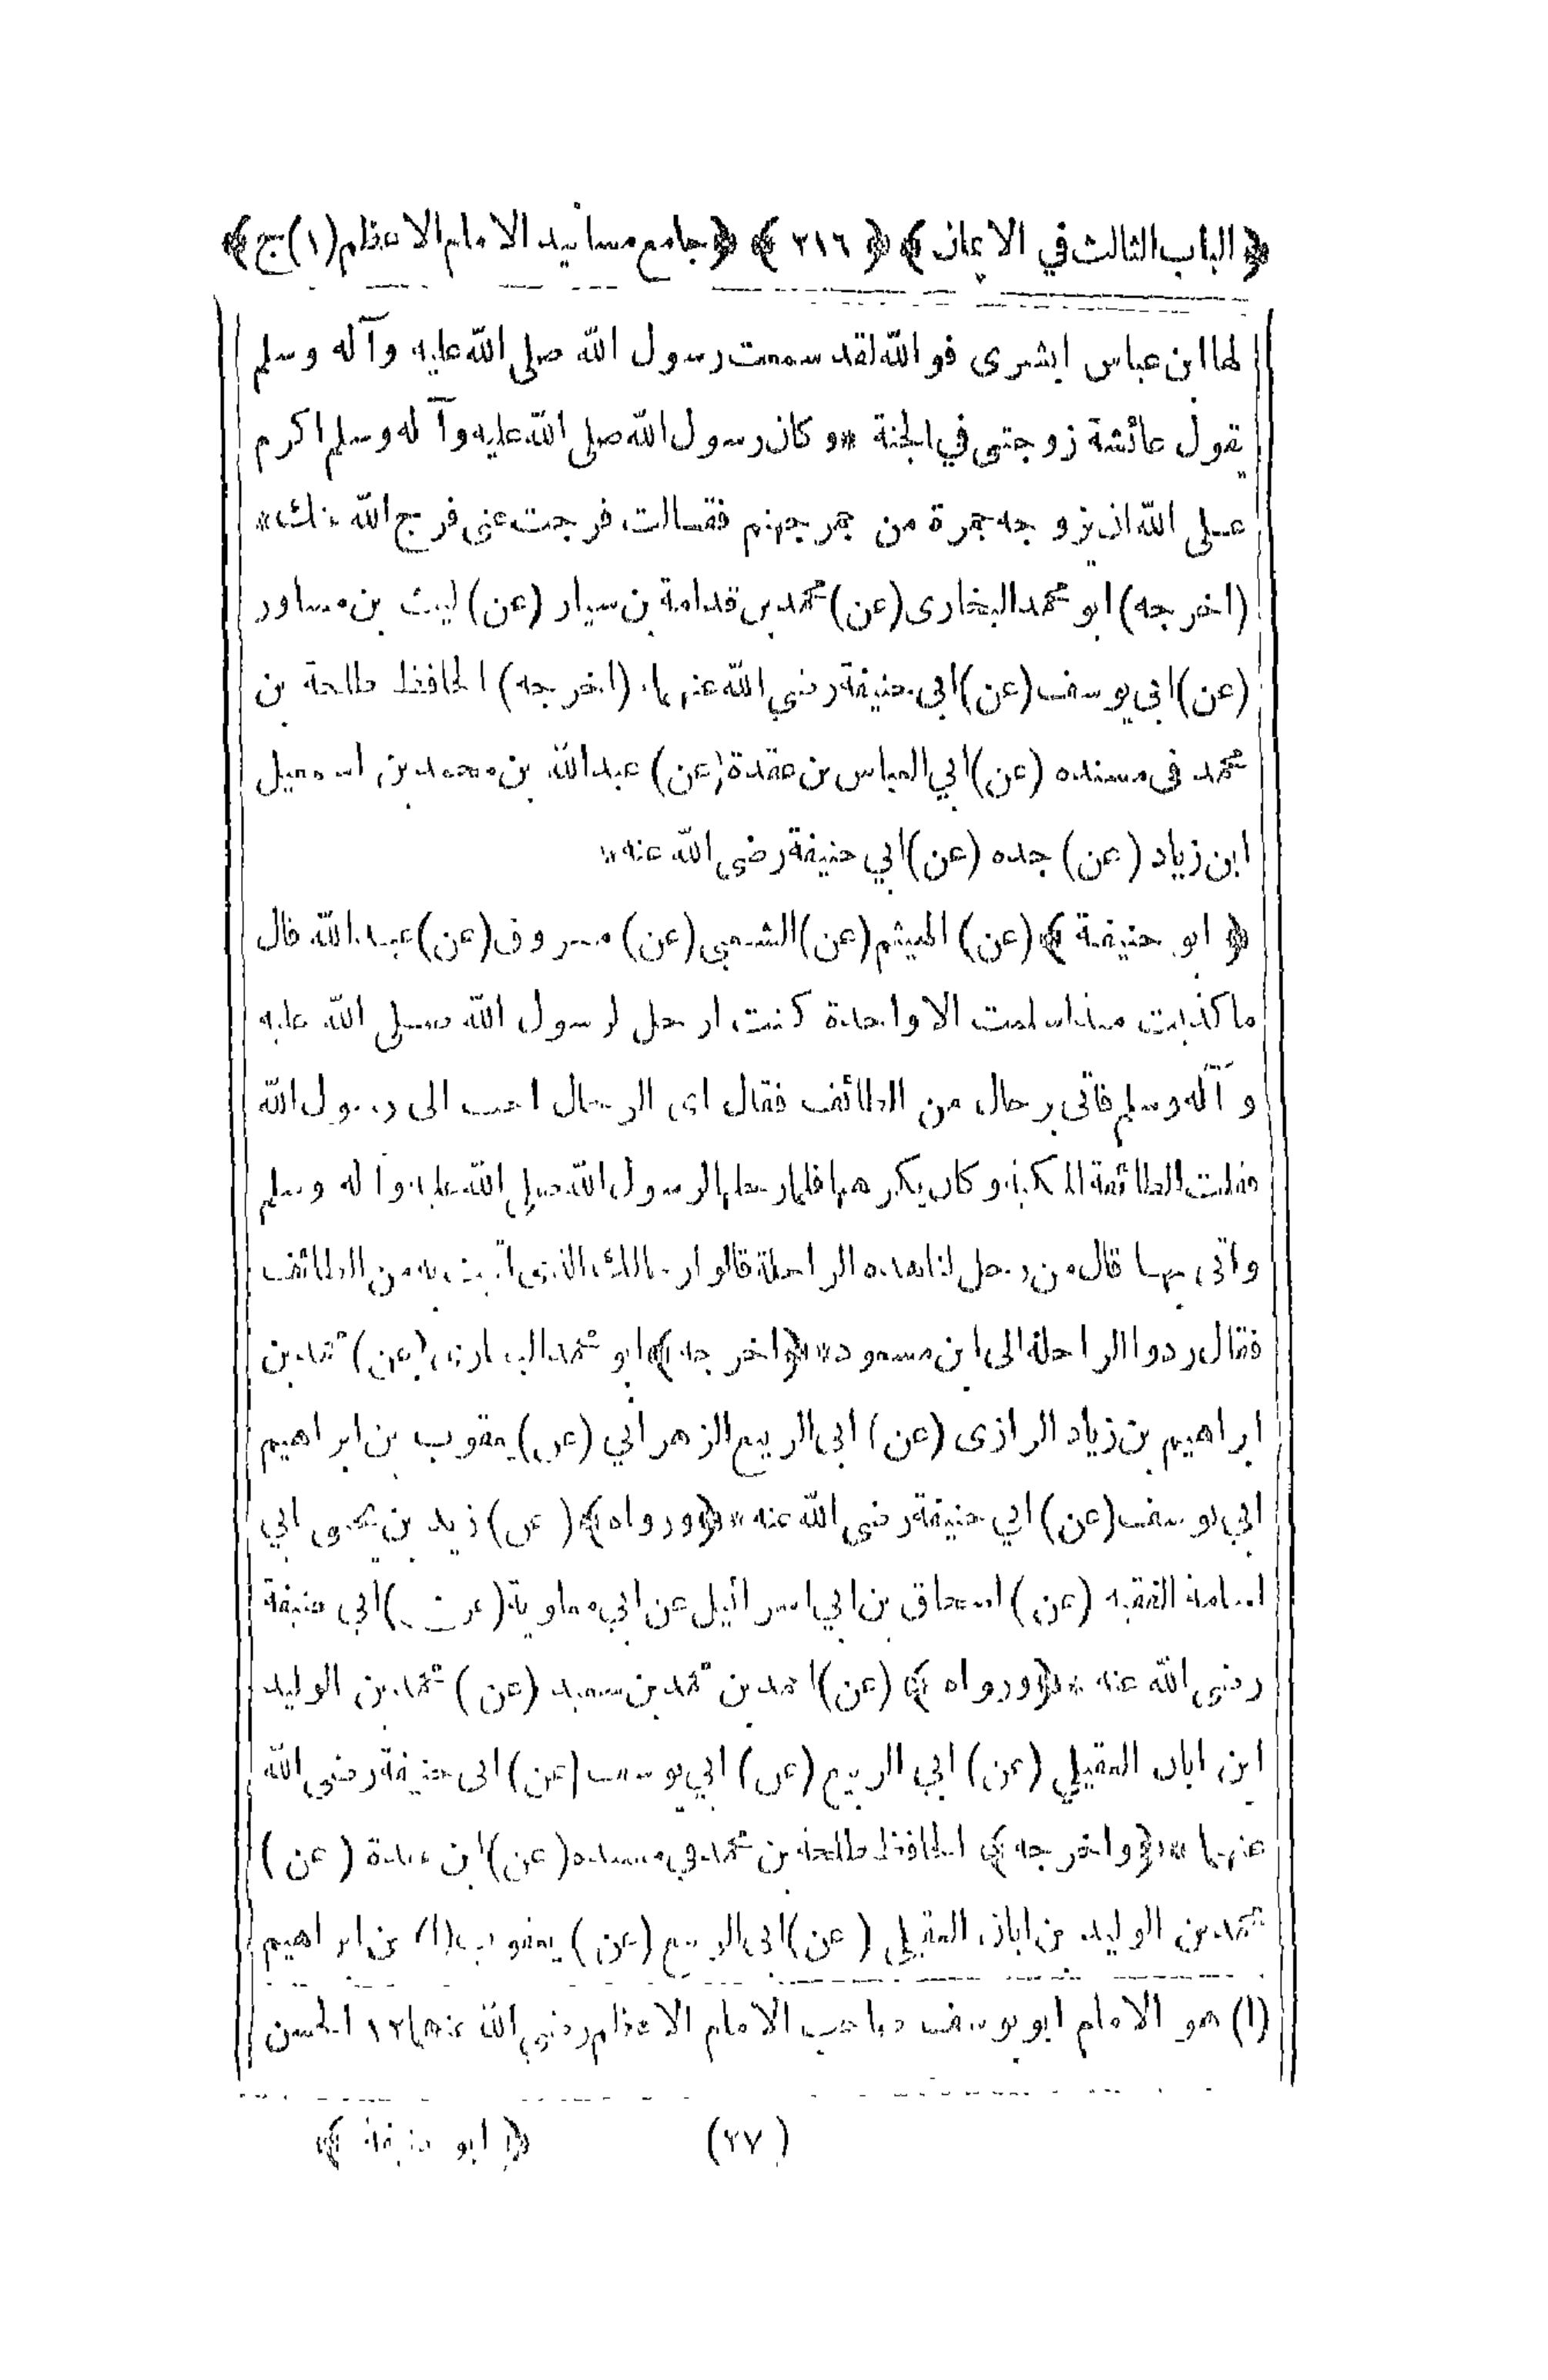 ﴿الباب الثالث في الايمان﴾ ﴿٢١٦﴾ ﴿جامع مسانيد الامام الاعظم (١) ج﴾
لها ابن عباس ابشرى فو الله لقد سمعت رسول الله صلى الله عليه وآله وسلم
يقول عائشة زوجتى في الجنة * وكان رسول الله صلى الله عليه وآله وسلم اكرم
على الله ان يزوجه جمرة من جمر جهنم فقالت فرجت عنى فرج الله عنك *
(اخرجه) ابو محمد البخارى (عن) محمد بن قدامة بن سيار (عن) ليث بن مساور
(عن) ابي يوسف (عن) ابي حنيفة رضي الله عنهما (اخرجه) الحافظ طلحة بن
محمد فى مسنده (عن) ابي العباس بن عقدة (عن) عبد الله بن محمد بن اسمعيل
ابن زياد (عن) جده (عن) ابي حنيفة رضى الله عنه *
﴿ابو حنيفة﴾ (عن) الهيثم (عن) الشعبي (عن) مسروق (عن) عبد الله قال
ما كذبت منذ اسلمت الا واحدة كنت ارحل لرسول الله صلى الله عليه
وآله وسلم فاتى برحال من الطائف فقال اى الرحال احب الى رسول الله
فقلت الطائفة المكية وكان يكرهها فلما رحلها لرسول الله صلى الله عليه وآله وسلم
واتى بها قال من رحل لنا هذه الراحلة قالوا رحالك الذى اتيت به من الطائف
فقال ردوا الراحلة الى ابن مسعود * ﴿واخرجه﴾ ابو محمد البخارى (عن) محمد بن
ابراهيم بن زياد الرازى (عن) ابى الربيع الزهراني (عن) يعقوب بن ابراهيم
ابي يوسف (عن) ابي حنيفة رضى الله عنه * ﴿ورواه﴾ (عن) زيد بن يحيى ابي
اسامة الفقيه (عن) اسحاق بن ابي اسرائيل عن ابي معاوية (عن) ابي حنيفة
رضى الله عنه * ﴿ورواه﴾ (عن) احمد بن محمد بن سعيد (عن) محمد بن الوليد
ابن ابان العقيلي (عن) ابي الربيع (عن) ابي يوسف (عن) ابى حنيفة رضى الله
عنهما * ﴿واخرجه﴾ الحافظ طلحة بن محمد في مسنده (عن) ابن عقدة (عن)
محمد بن الوليد بن ابان العقيلي (عن) ابى الربيع (عن) يعقوب (١) بن ابراهيم
(١) هو الامام ابو يوسف صاحب الامام الاعظم رضى الله عنهما ١٢ الحسن
(٢٧) ﴿ابو حنيفة﴾